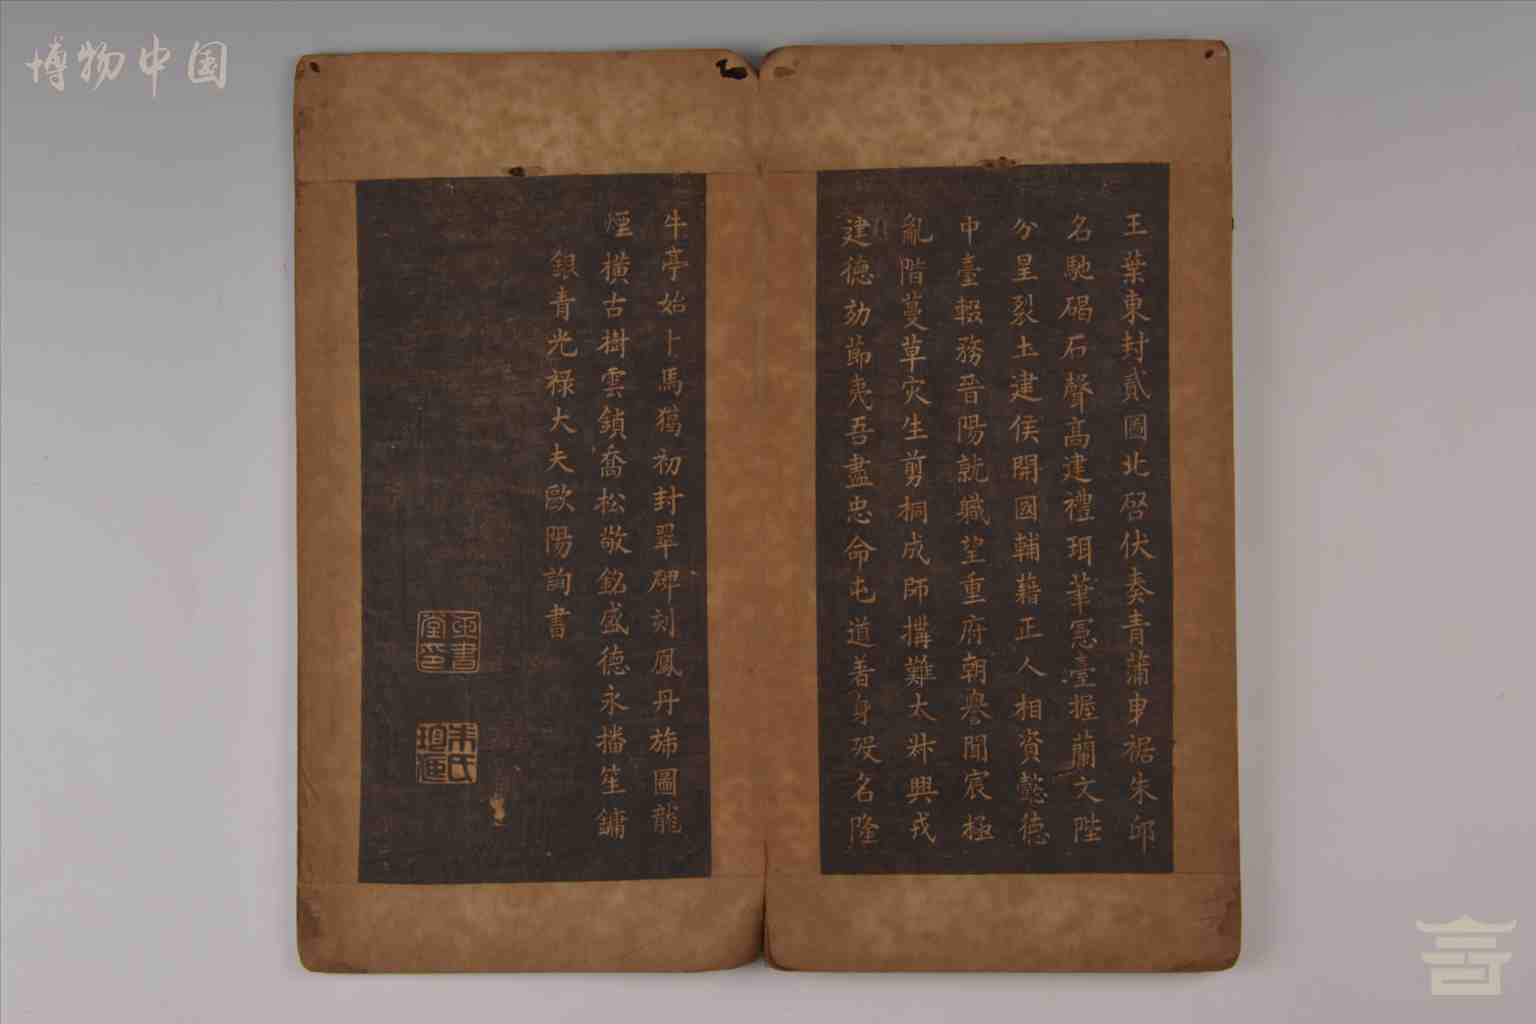 博物中国
玉葉東封貳圖北啓伏奏青蒲曳裾朱邱
名馳碣石聲高建禮珥筆憲臺握蘭文陛
分星裂土建侯開國輔藉正人相資懿德
中臺輟務晉陽就職望重府朝譽聞宸極
亂階蔓草災生剪桐成師搆難太叔興戎
建德効節夷吾盡忠命屯道著身歿名隆
牛亭始卜馬鬣初封翠碑刻鳳丹旐圖龍
煙橫古樹雲鎖喬松敬銘盛德永播笙鏞
銀青光祿大夫歐陽詢書
玉書堂印
朱氏珇洒